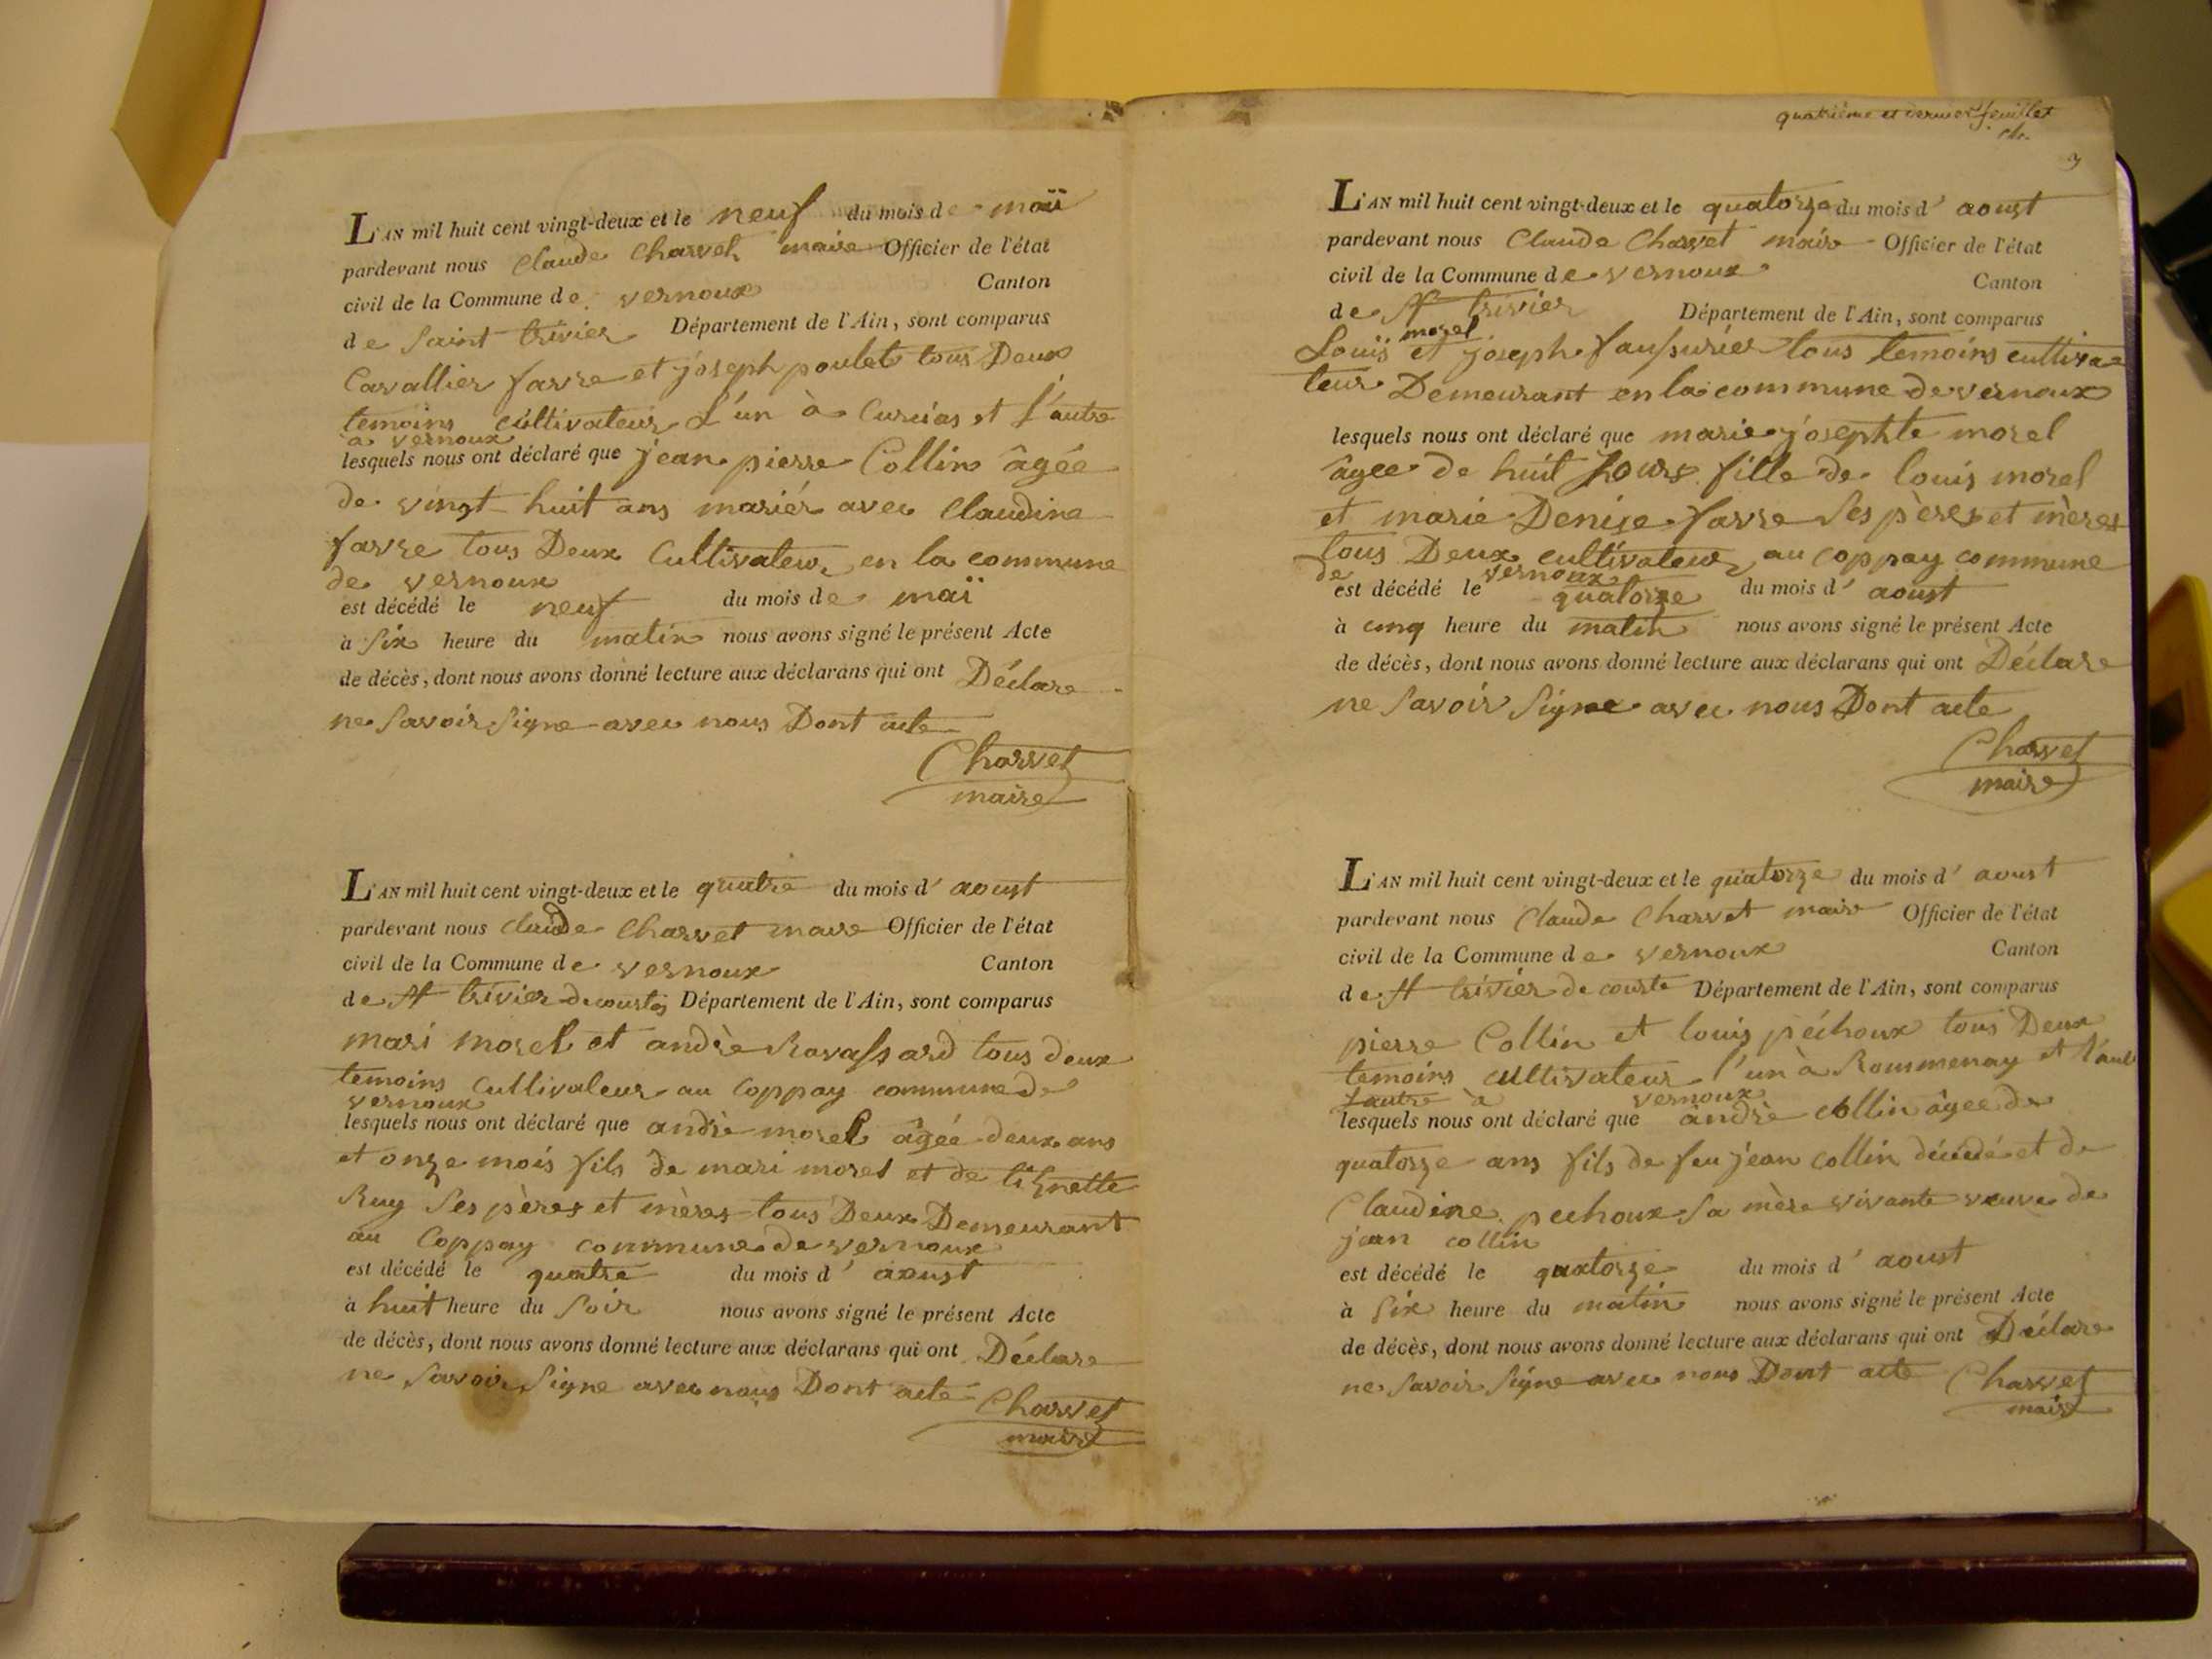 L'AN mil huit cent vingt-deux et le neuf du mois de maï
pardevant nous Claude Charvet maire Officier de l'état
civil de la Commune de vernoux Canton
de Saint trivier Département de l'Ain, sont comparus
Cavallier favre et joseph poulet tous Deux
temoins cultivateur L'un à Curcias et L'autre
a vernoux
lesquels nous ont déclaré que jean pierre Collin âgée
de vingt huit ans mariér avec Claudine
favre tous Deux Cultivateur en la commune
de vernoux
est décédé le neuf du mois de maï
à Six heure du matin nous avons signé le présent Acte
de décès, dont nous avons donné lecture aux déclarans qui ont Déclare
ne Savoir Signe avec nous Dont acte
Charvet
maire
L'AN mil huit cent vingt-deux et le quatre du mois d' aoust
pardevant nous claude Charvet maire Officier de l'état
civil de la Commune de vernoux Canton
de St trivier de courtes Département de l'Ain, sont comparus
mari morel et andrè Ravassard tous deux
temoins cultivateur au Coppay commune de
vernoux
lesquels nous ont déclaré que andrè morel âgée deux ans
et onze mois fils de mari morel et de
Ruy Ses pères et mères tous Deux Demeurant
au Coppay commune de vernoux
est décédé le quatre du mois d' aoust
à huit heure du Soir nous avons signé le présent Acte
de décès, dont nous avons donné lecture aux déclarans qui ont Déclare
ne Savoir Signe avec nous Dont acte Charvet
maire
quatrième et dernier feuillet
L'AN mil huit cent vingt-deux et le quatorze du mois d' aoust
pardevant nous Claude Charvet maire Officier de l'état
civil de la Commune de vernoux Canton
de St trivier Département de l'Ain, sont comparus
morel
Louis et joseph faussurier tous temoins cultiva-
teur Demeurant en la commune de vernoux
lesquels nous ont déclaré que marie josephte morel
âgee de huit Jours fille de louis morel
et marie Denise favre Ses pères et mères
tous Deux cultivateur au coppay commune
de vernoux
est décédé le quatorze du mois d' aoust
à cinq heure du matin nous avons signé le présent Acte
de décès, dont nous avons donné lecture aux déclarans qui ont Déclare
ne Savoir Signe avec nous Dont acte
Charvet
maire
L'AN mil huit cent vingt-deux et le quatorze du mois d' aoust
pardevant nous Claude Charvet maire Officier de l'état
civil de la Commune de vernoux Canton
de St trivier de courte Département de l'Ain, sont comparus
pierre Collin et louis péchoux tous Deux
temoins cultivateur l'un à Rommenay et l'aut
L'autre à vernoux
lesquels nous ont déclaré que andrè collin âgee de
quatorze ans fils de feu jean collin décédé et de
Claudine pechoux Sa mère vivante veuve de
jean collin
est décédé le quatorze du mois d' aoust
à Six heure du matin nous avons signé le présent Acte
de décès, dont nous avons donné lecture aux déclarans qui ont Déclare
ne Savoir Signe avec nous Dont acte Charvet
maire